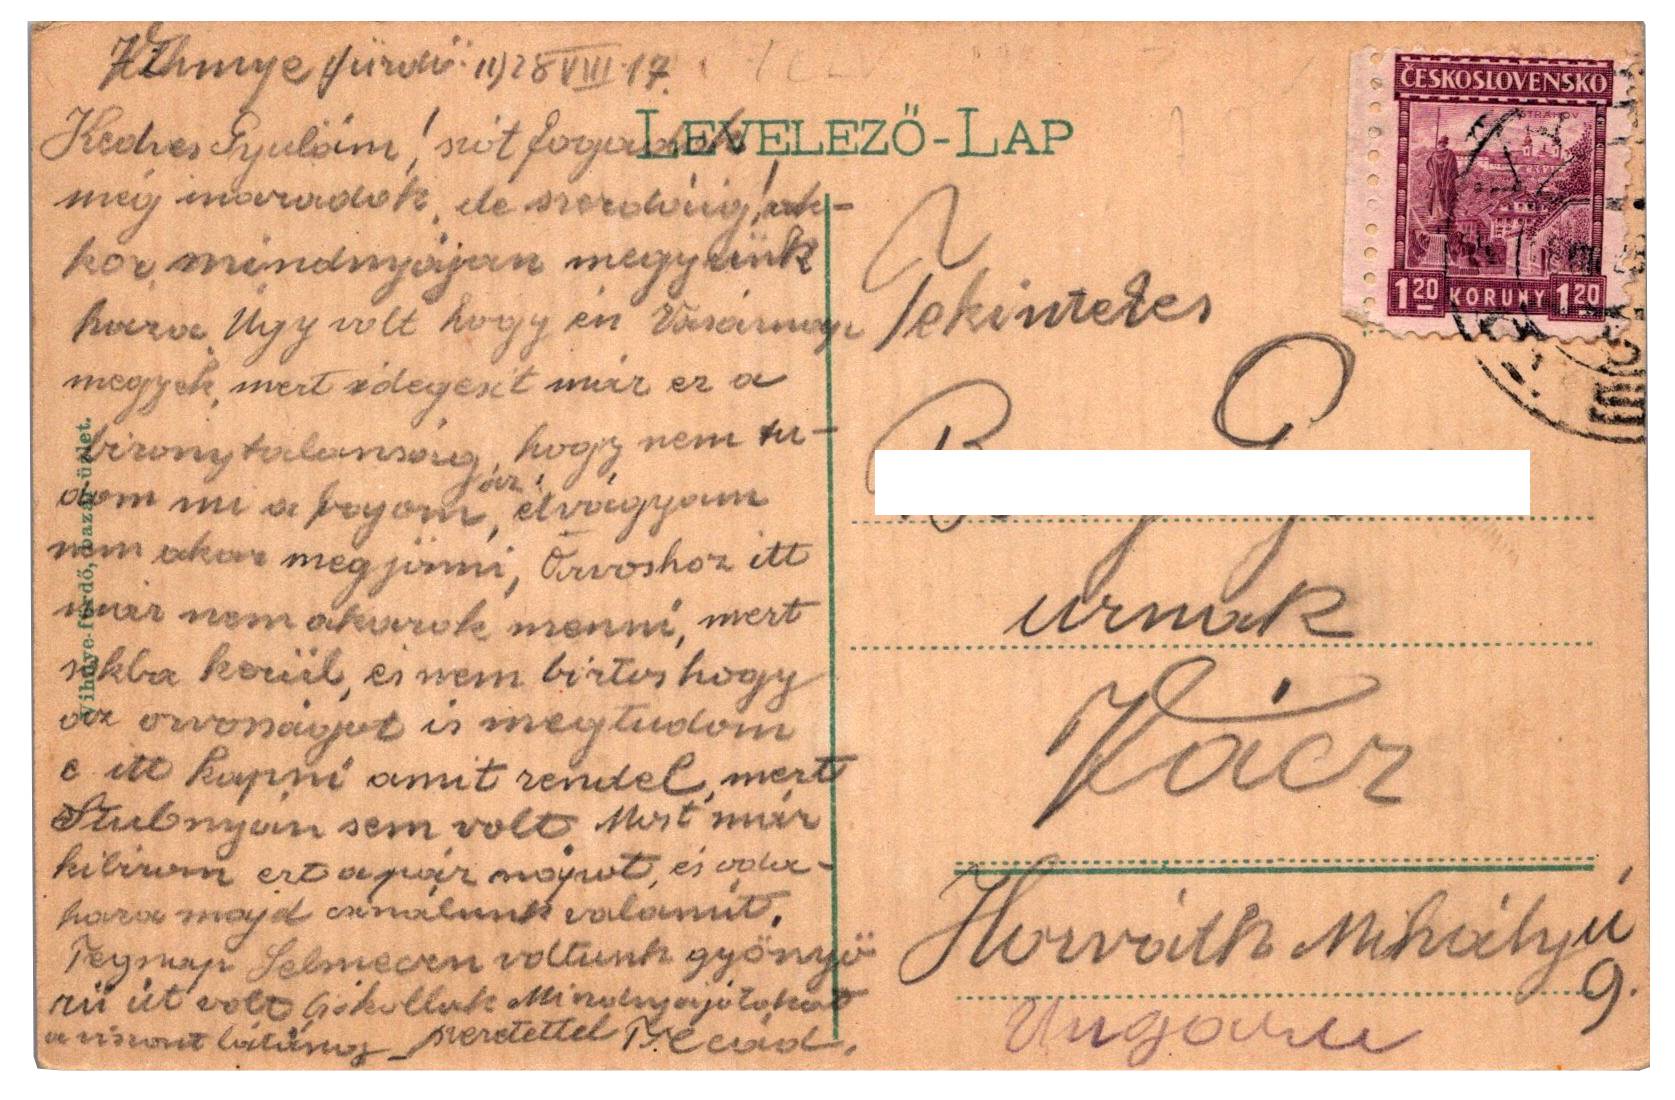 Vihnye fürdő 1928 VIII 17.
Kedves Gyulám! szót fogadok
még maradok, de szerdáig, ak-
kor mindnyájan megyünk
haza. Úgy volt hogy én Vasárnap
megyek, mert idegesít már ez a
bizonytalanság, hogy nem tu-
dom mi a bajom, elvágyam
az
nem akar megjönni, Orvoshoz itt
már nem akarok menni, mert
sokba kerül, és nem biztos hogy
az orvosságot is megtudom
e itt kapni amit rendel, mert
Stubnyán sem volt. Most már
kibirom ezt a pár napot, és oda-
haza majd csinálunk valamit.
Tegnap Selmecen voltunk gyönyö
rű út volt. Csókollak Mindnyájatokat
a viszontlátásig szeretettel
LEVELEZŐ-LAP
Tekintetes
urnak
Vácz
Horváth Mihály ú
9.
Ungarn
Vihnye-fürdő, bazár-üzlet.
ČESKOSLOVENSKO
STRAHOV
1.20 KORUNY 1.20